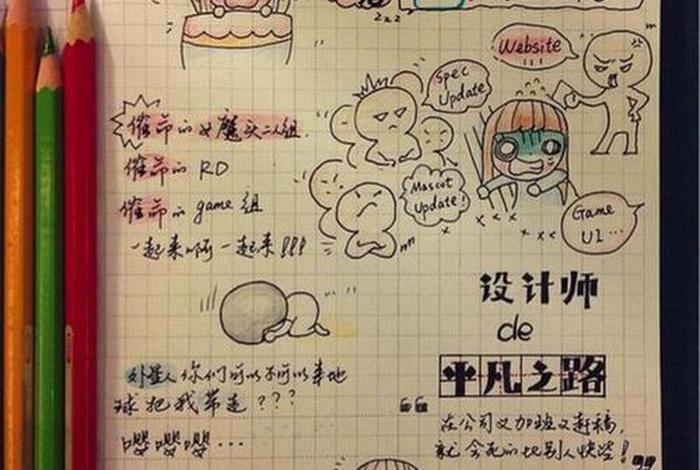 zzz
Website
Spec
Update
催命的女魔头二人组.
催命的 RD
催命的 game 组
一起来啊一起来!!!
Mascot
Update!
Game
UI...
设计师
de
平凡之路
外星人你们可以不可以来地
球把我带走???
嘤嘤嘤...
“在公司又加班又赶稿,
就会死的比别人快些!”